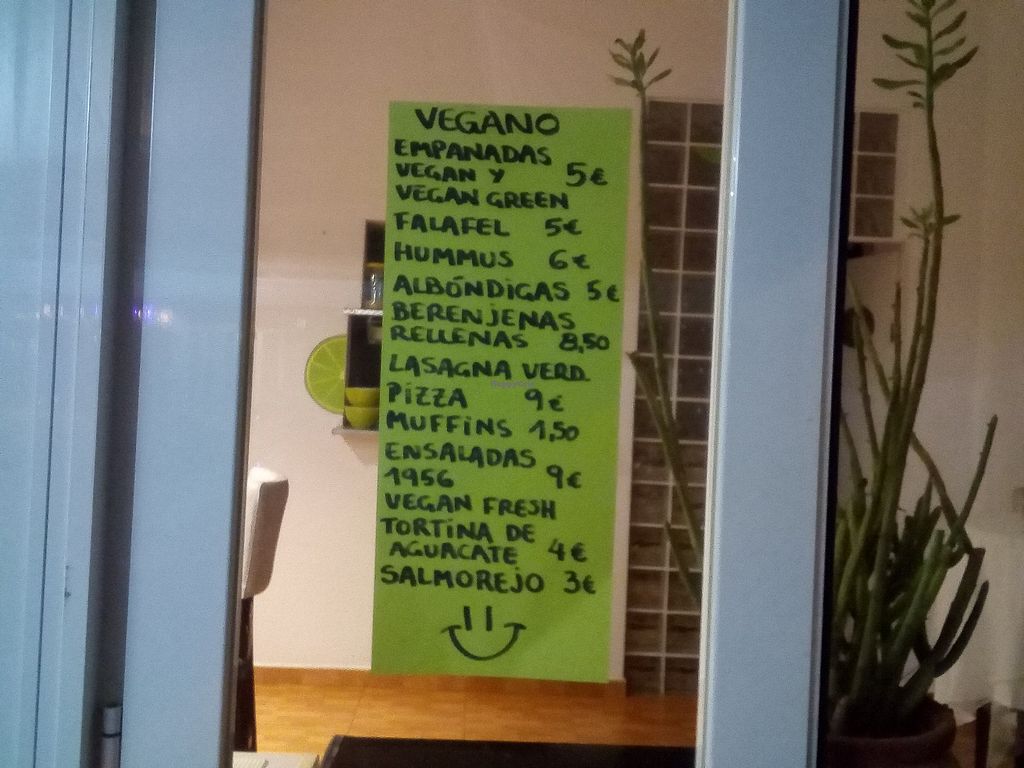 VEGANO
EMPANADAS
VEGAN Y 5€
VEGAN GREEN
FALAFEL 5€
HUMMUS 6€
ALBÓNDIGAS 5€
BERENJENAS
RELLENAS 8,50
LASAGNA VERD.
PIZZA 9€
MUFFINS 1,50
ENSALADAS
1956 9€
VEGAN FRESH
TORTINA DE
AGUACATE 4€
SALMOREJO 3€